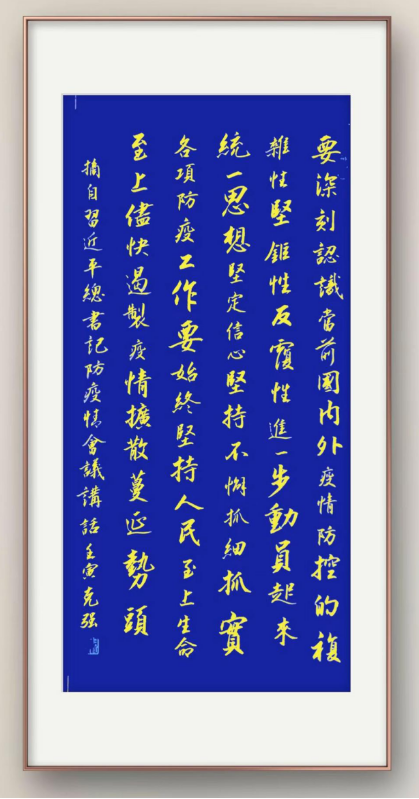 要深刻認識當前國内外疫情防控的複
雜性堅鉅性反覆性進一步動員起来
統一思想堅定信心堅持不懈抓細抓實
各項防疫工作要始終堅持人民至上生命
至上儘快遏製疫情擴散蔓延勢頭
摘自習近平總書記防疫情會議講話壬寅克强